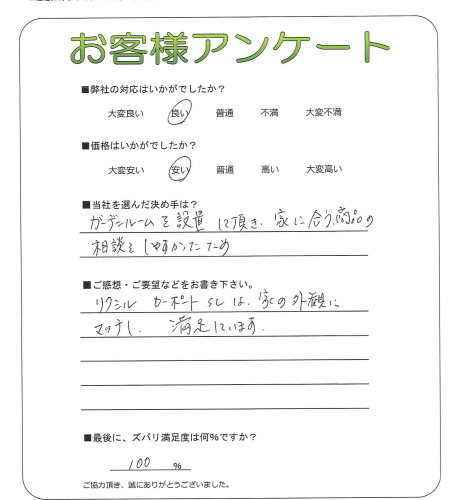 お客様アンケート
■弊社の対応はいかがでしたか?
大変良い 良い 普通 不満 大変不満
■価格はいかがでしたか?
大変安い 安い 普通 高い 大変高い
■当社を選んだ決め手は?
ガーデンルームを設置して頂き、家に合う商品の
相談をしたかったため
■ご感想・ご要望などをお書き下さい。
リクシル カーポートSCは、家の外観に
マッチし、満足しています。
■最後に、ズバリ満足度は何%ですか?
100 %
ご協力頂き、誠にありがとうございました。